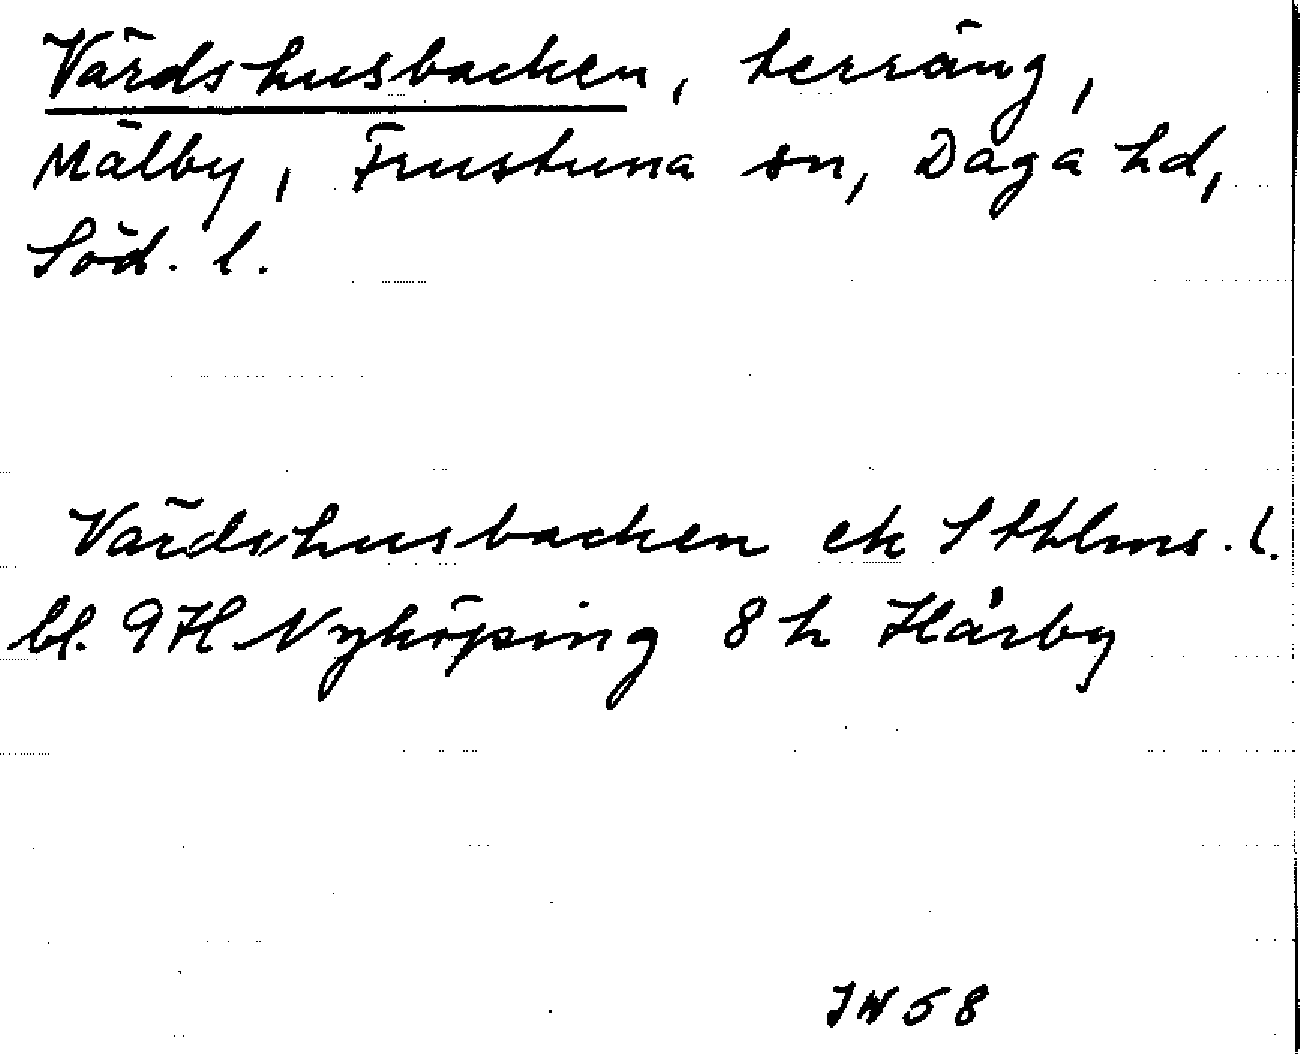 Värdshusbacken, terräng,
Mälby, Frustuna sn, Daga hd,
Söd. l.
Värdshusbacken ek Sthlms. l.
bl. 9H Nyköping 8 h Hårby
IN 58